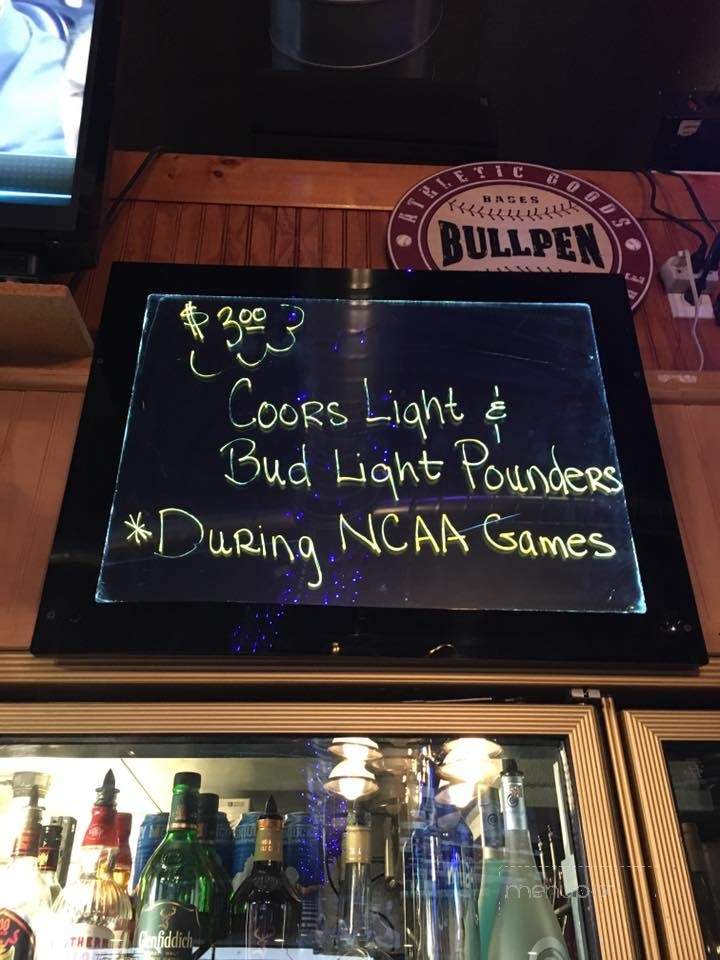 ATHLETIC GOODS
BASES
BULLPEN
$3.00
Coors Light &
Bud Light Pounders
*During NCAA Games
Glenfiddich
menupix